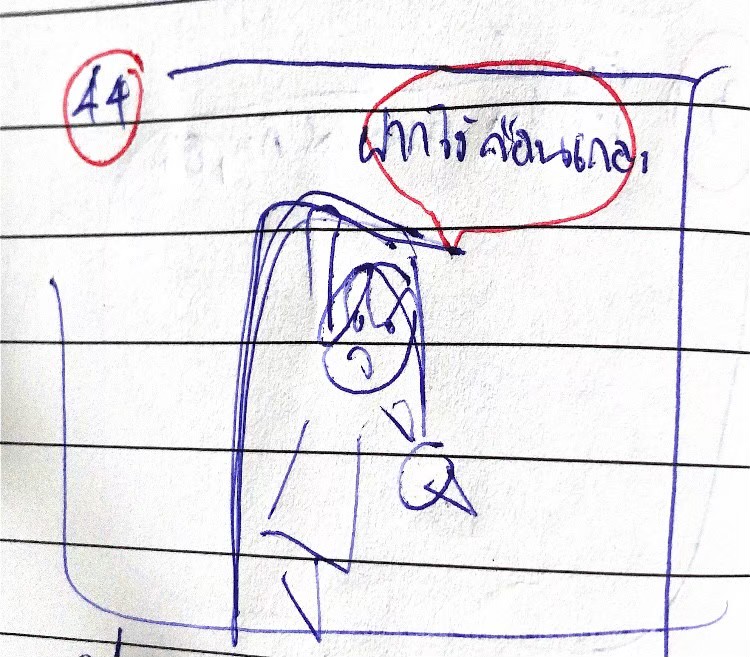 44
ฝากไว้ก่อนเถอะ